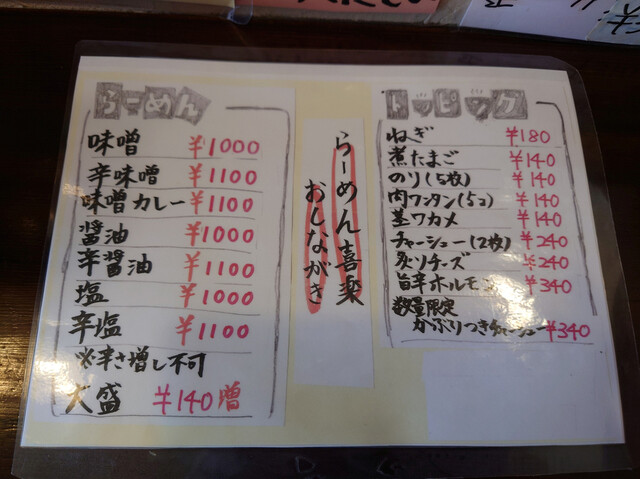 らーめん
味噌 ¥1000
辛味噌 ¥1100
味噌カレー ¥1100
醤油 ¥1000
辛醤油 ¥1100
塩 ¥1000
辛塩 ¥1100
※辛さ増し不可
大盛 ¥140増
らーめん喜楽
おしながき
トッピング
ねぎ ¥180
煮たまご ¥140
のり(5枚) ¥140
肉ワンタン(5コ) ¥140
茎ワカメ ¥140
チャーシュー(2枚) ¥240
炙りチーズ ¥240
旨辛ホルモン ¥340
数量限定
かぶりつきチャーシュー ¥340